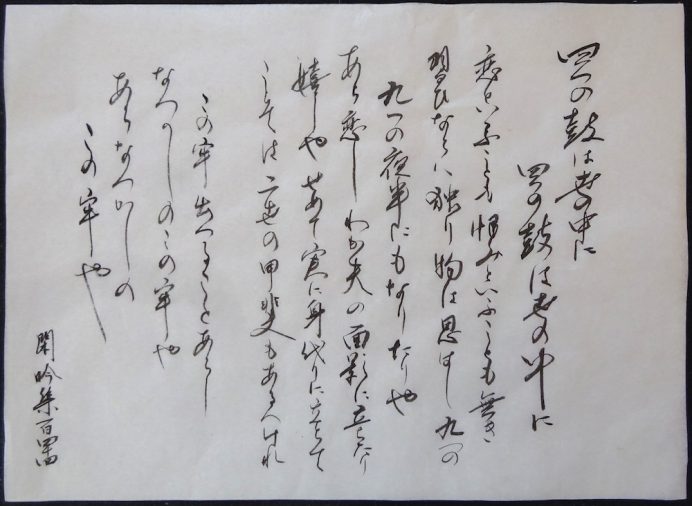 四つの鼓は世の中に
四の鼓は世の中に
恋といふことも恨みといふことも無き
習ひならハ独り物は思はし九つの
九つの夜半にもなりたりや
あら恋しわか夫の面影に立ちたり
嬉しやせめて実に身代りに立ちて
こそは二世の甲斐もあるへけれ
この牢出へることあらし
なつかしのこの牢や
あらなつかしの
この牢や
閑吟集百四四